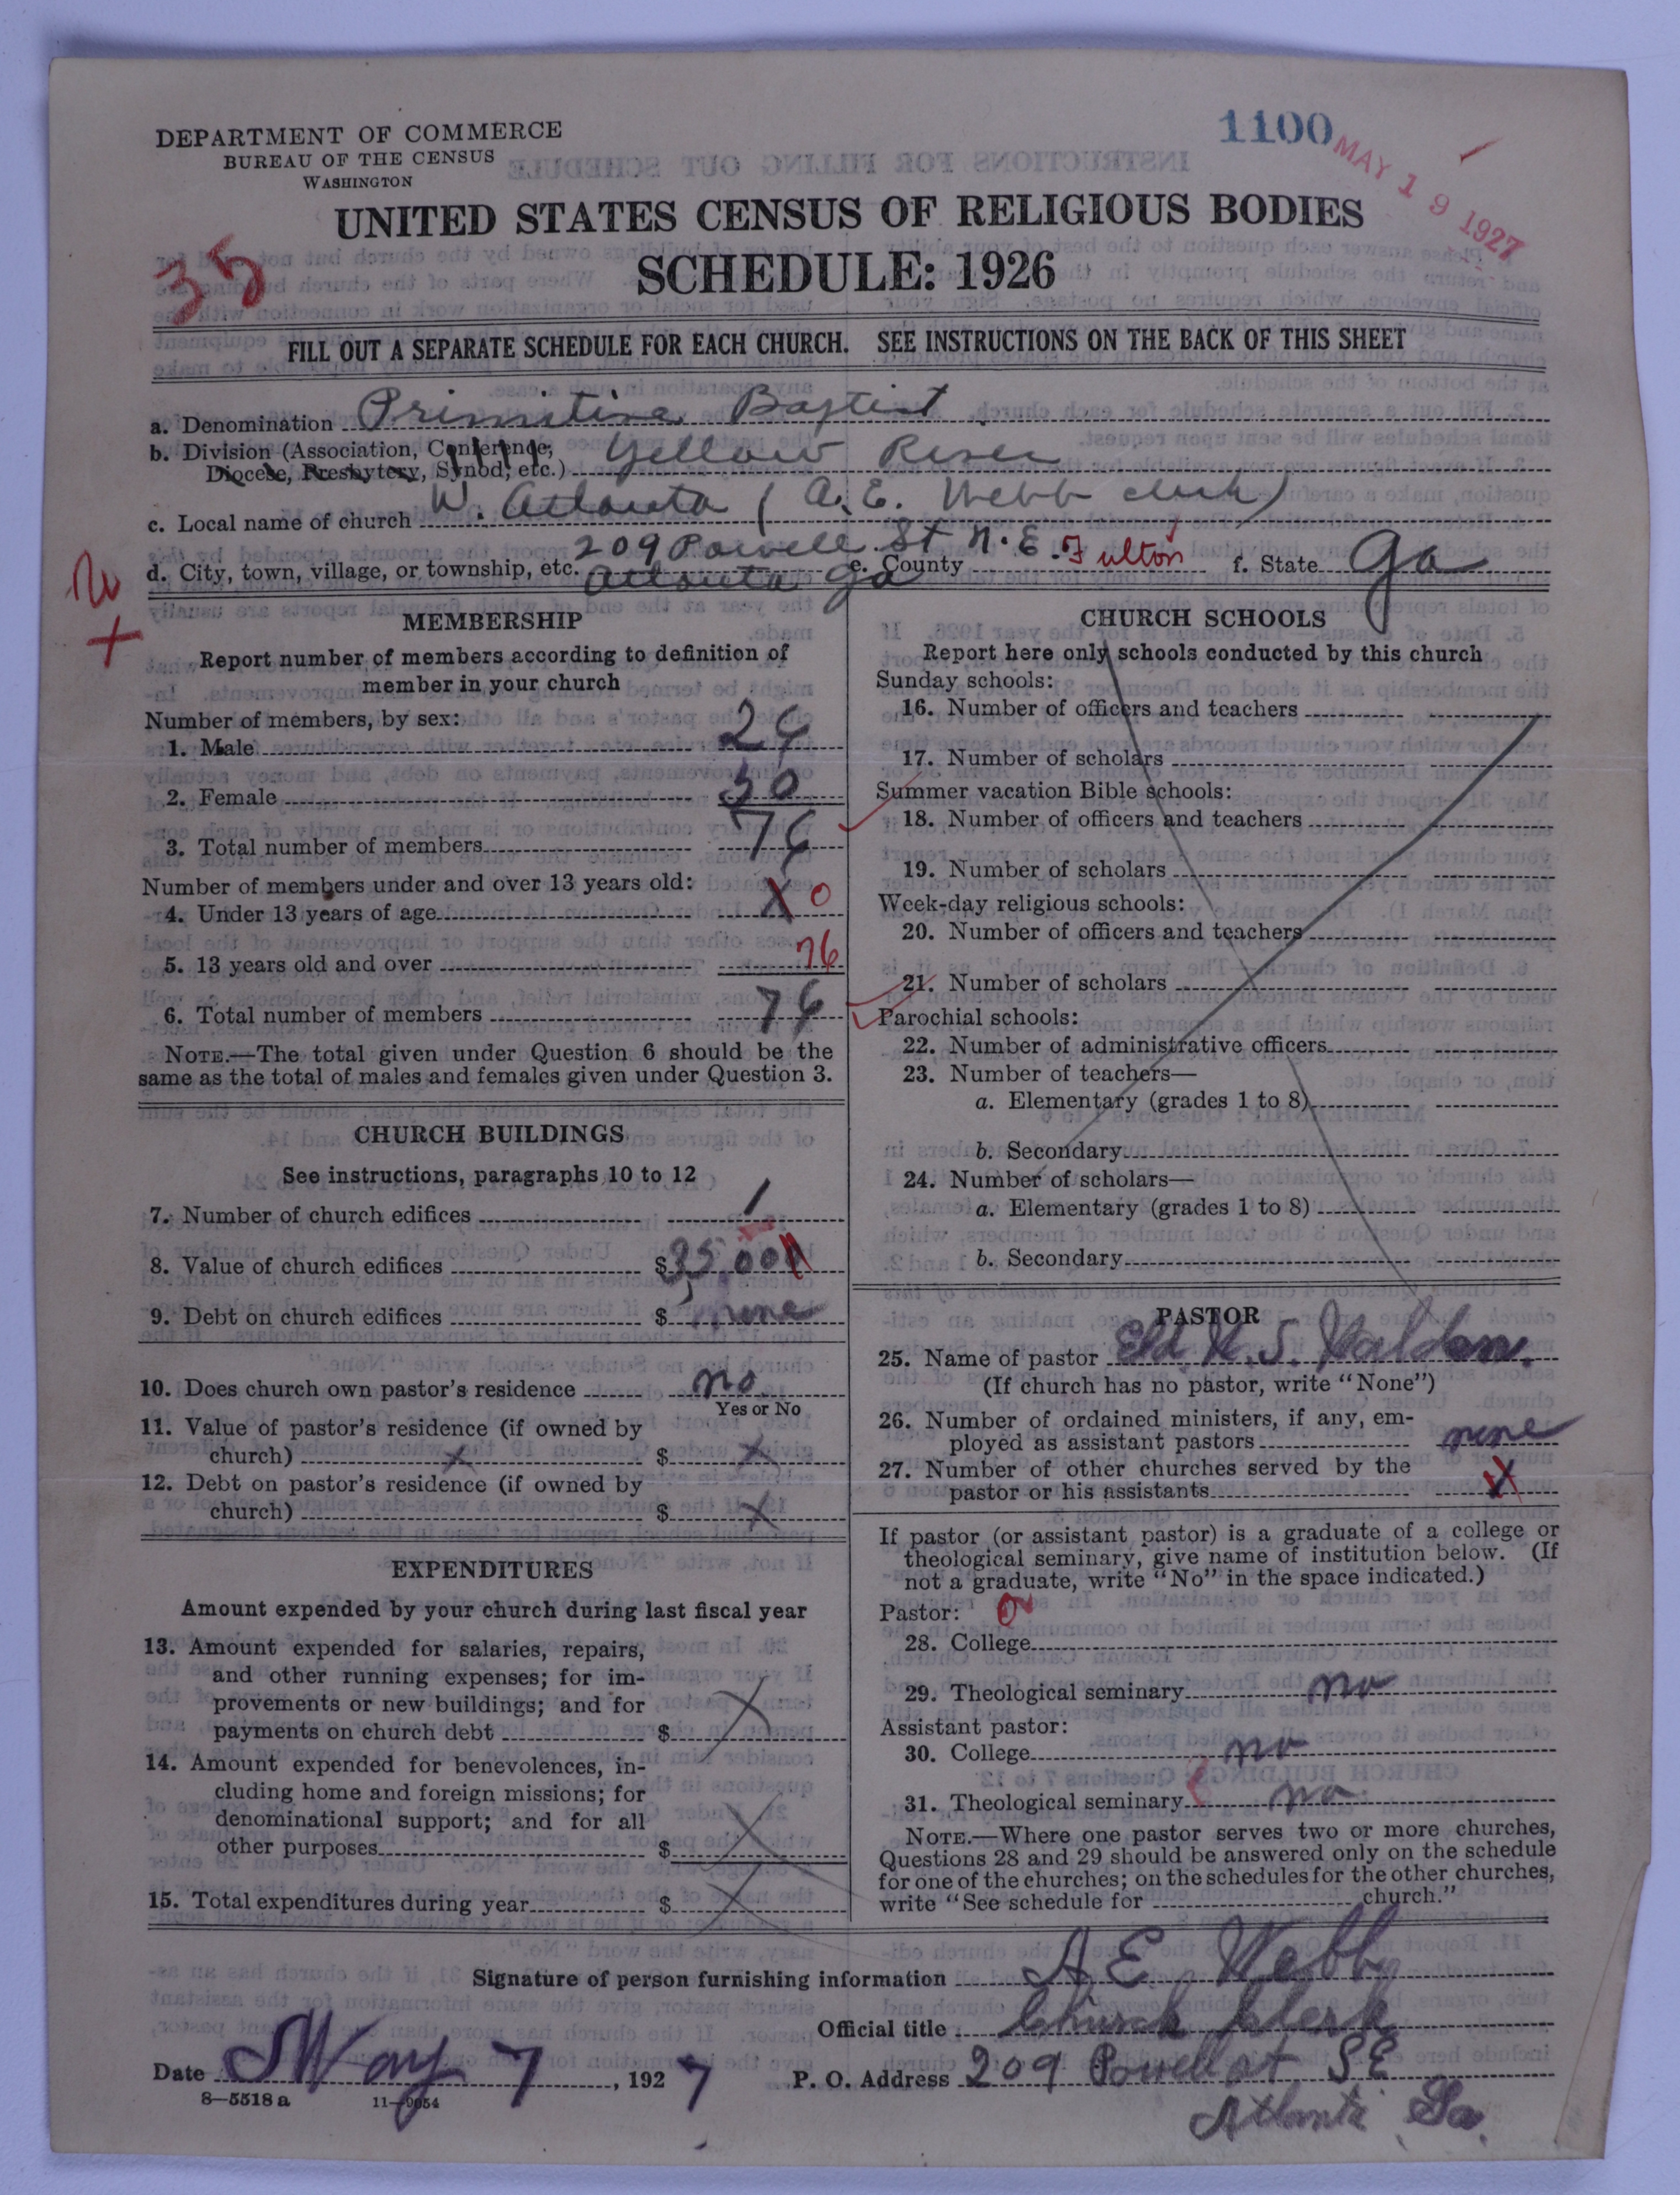 DEPARTMENT OF COMMERCE
BUREAU OF THE CENSUS
WASHINGTON
1100
MAY 19 1927
UNITED STATES CENSUS OF RELIGIOUS BODIES
SCHEDULE: 1926
35
FILL OUT A SEPARATE SCHEDULE FOR EACH CHURCH. SEE INSTRUCTIONS ON THE BACK OF THIS SHEET
a. Denomination Primitive Baptist
b. Division (Association, Conference,
Diocese, Presbytery, Synod, etc.) Yellow River
c. Local name of church W. Atlanta (A. E. Webb clerk)
209 Powell St N. E.
d. City, town, village, or township, etc. Atlanta Ga e. County Fulton f. State Ga
MEMBERSHIP
Report number of members according to definition of
member in your church
Number of members, by sex:
1. Male 26
2. Female 50
3. Total number of members 76
Number of members under and over 13 years old:
4. Under 13 years of age X 0
5. 13 years old and over 76
6. Total number of members 76
NOTE.—The total given under Question 6 should be the
same as the total of males and females given under Question 3.
CHURCH BUILDINGS
See instructions, paragraphs 10 to 12
7. Number of church edifices 1
8. Value of church edifices $ 35,000
9. Debt on church edifices $ none
10. Does church own pastor's residence no
Yes or No
11. Value of pastor's residence (if owned by
church) x $ x
12. Debt on pastor's residence (if owned by
church) $ x
EXPENDITURES
Amount expended by your church during last fiscal year
13. Amount expended for salaries, repairs,
and other running expenses; for im-
provements or new buildings; and for
payments on church debt $ X
14. Amount expended for benevolences, in-
cluding home and foreign missions; for
denominational support; and for all
other purposes $ X
15. Total expenditures during year $ X
CHURCH SCHOOLS
Report here only schools conducted by this church
Sunday schools:
16. Number of officers and teachers
17. Number of scholars
Summer vacation Bible schools:
18. Number of officers and teachers
19. Number of scholars
Week-day religious schools:
20. Number of officers and teachers
21. Number of scholars
Parochial schools:
22. Number of administrative officers
23. Number of teachers—
a. Elementary (grades 1 to 8)
b. Secondary
24. Number of scholars—
a. Elementary (grades 1 to 8)
b. Secondary
PASTOR
25. Name of pastor Eld. W. S. Walden.
(If church has no pastor, write "None")
26. Number of ordained ministers, if any, em-
ployed as assistant pastors none
27. Number of other churches served by the
pastor or his assistants X
If pastor (or assistant pastor) is a graduate of a college or
theological seminary, give name of institution below. (If
not a graduate, write "No" in the space indicated.)
Pastor:
28. College
29. Theological seminary no
Assistant pastor:
30. College no
31. Theological seminary no
NOTE.—Where one pastor serves two or more churches,
Questions 28 and 29 should be answered only on the schedule
for one of the churches; on the schedules for the other churches,
write "See schedule for church."
Signature of person furnishing information A E Webb
Official title Church Clerk
Date May 7, 1927 P. O. Address 209 Powell st S E
8—5518 a 11—9054 Atlanta Ga.